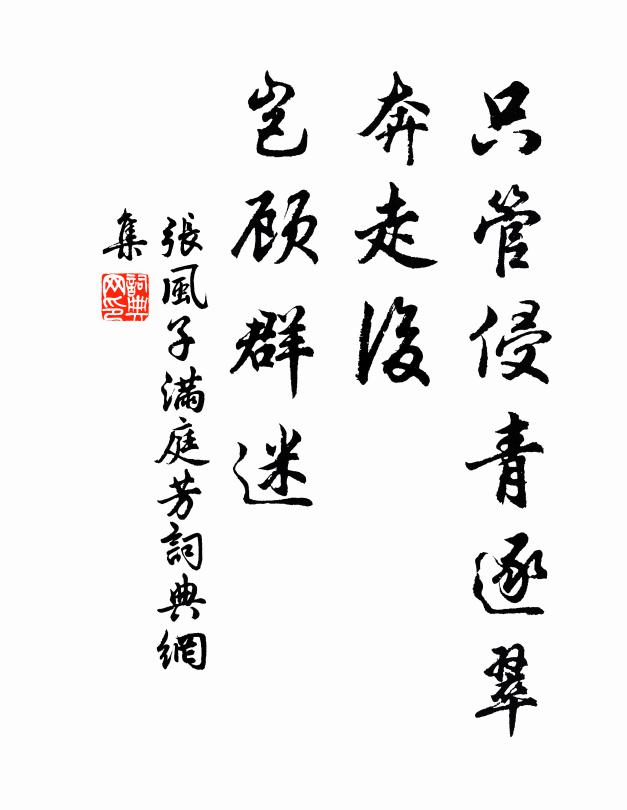 只管侵青逐翠
奔走後
岂顾群迷
張風子滿庭芳詞典網
集
詞典網印